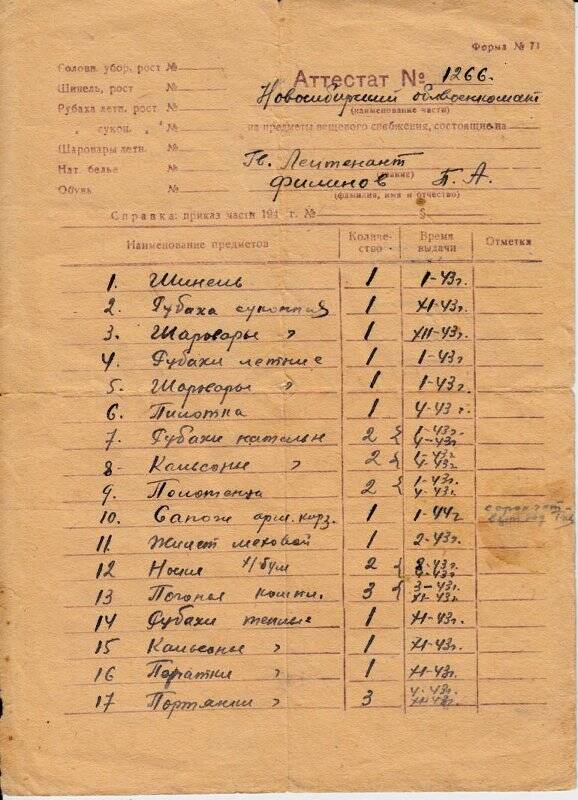 Форма № 71
Головн. убор, рост №
Шинель, рост №
Рубаха летн. рост №
„ сукон. „ №
Шаровары летн.
Нат. белье №
Обувь №
Аттестат № 1266.
Новосибирский облвоенкомат
(наименование части)
на предметы вещевого снабжения, состоящие на
Гв. Лейтенант
(звание)
Филинов Б. А.
(фамилия, имя и отчество)
Справка: приказ части 194 г. № §
Наименование предметов Количество Время выдачи Отметка
1. Шинель 1 1-43г.
2. Рубаха суконная 1 XI-43г.
3. Шаровары " 1 XII-43г.
4. Рубахи летние 1 1-43г
5. Шаровары " 1 1-43г.
6. Пилотка 1 4-43г.
7. Рубахи нательн 2 { 1-43г. 4-43г.
8. Кальсоны " 2 { 1-43г. 4-43г
9. Полотенца 2 { 1-43г. 4-43г.
10. Сапоги арм. кирз. 1 1-44г
11. Жилет меховой 1 2-43г.
12 Носки х/бум 2 { 8-43г.
13 Погоны 3 { 3-43г. XI-43г.
14 Рубахи теплые 1 XI-43г.
15 Кальсоны " 1 XI-43г.
16 " 1 XI-43г.
17 Портянки " 3 4-43г. XII-43г.